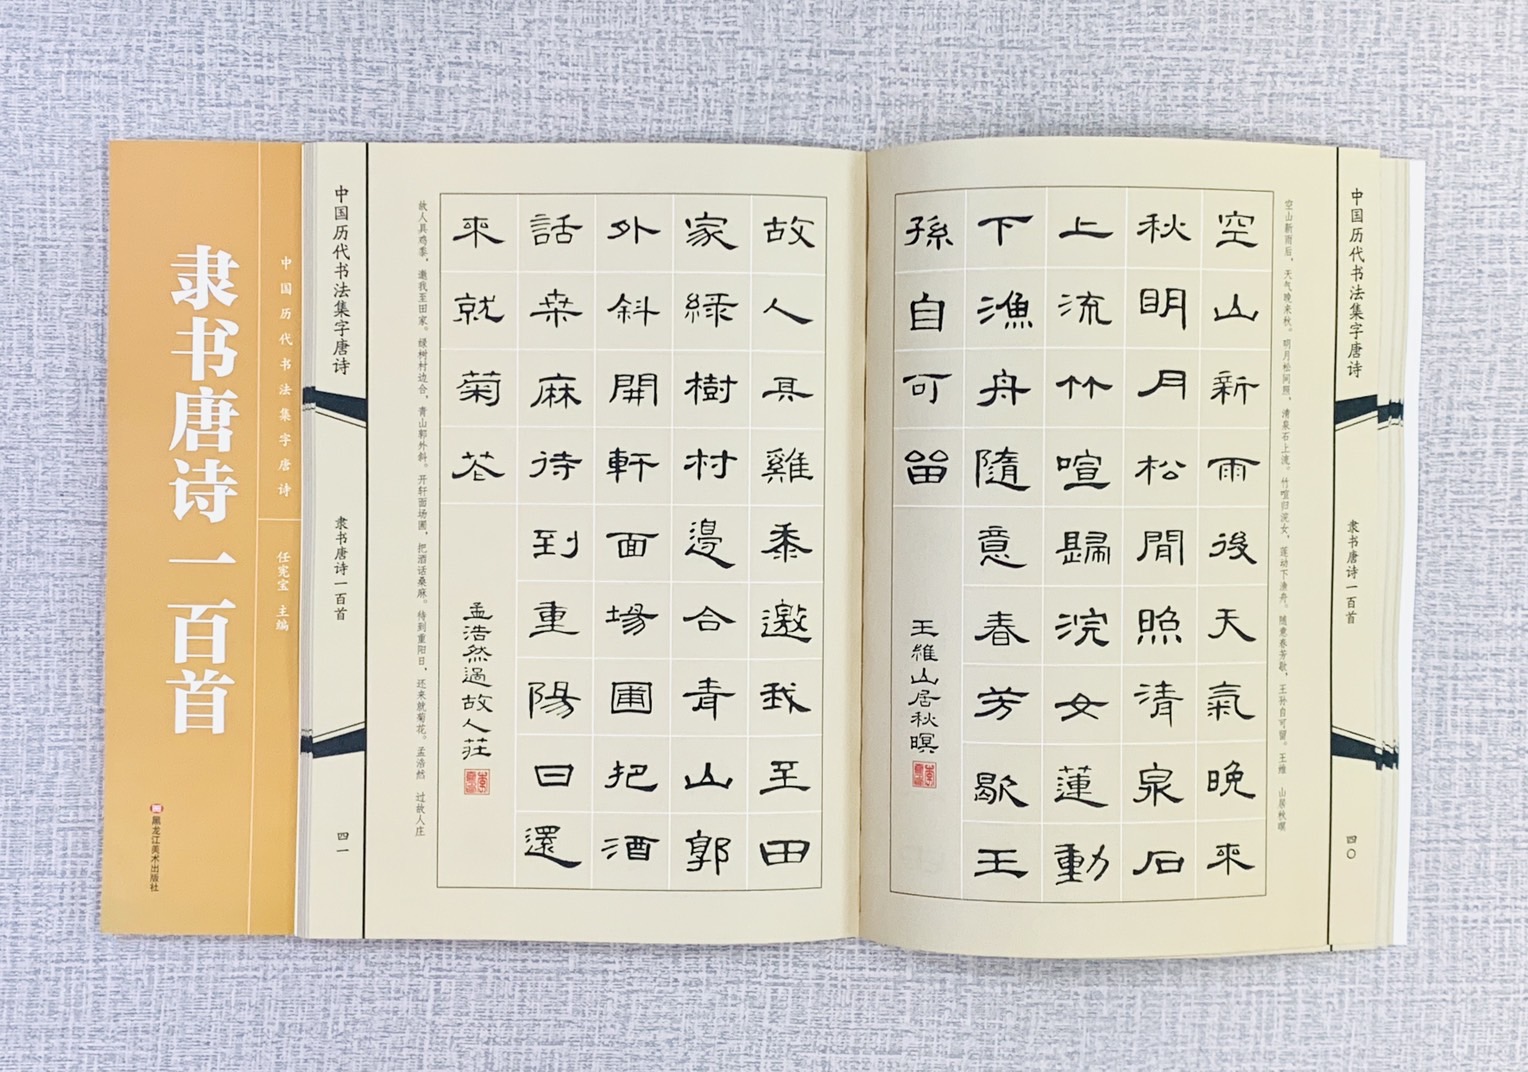 中国历代书法集字唐诗
隶书唐诗一百首
四〇
空山新雨后，天气晚来秋。明月松间照，清泉石上流。竹喧归浣女，莲动下渔舟。随意春芳歇，王孙自可留。王维 山居秋暝
空山新雨後天氣晚來
秋明月松閒照清泉石
上流竹喧歸浣女蓮動
下漁舟隨意春芳歇王
孫自可留
王維山居秋暝
故人具雞黍邀我至田
家綠樹村邊合青山郭
外斜開軒面場圃把酒
話桒麻待到重陽日還
來就菊花
孟浩然過故人莊
故人具鸡黍，邀我至田家。绿树村边合，青山郭外斜。开轩面场圃，把酒话桑麻。待到重阳日，还来就菊花。孟浩然 过故人庄
中国历代书法集字唐诗
隶书唐诗一百首
四一
中国历代书法集字唐诗
任宪宝 主编
隶书唐诗一百首
黑龙江美术出版社